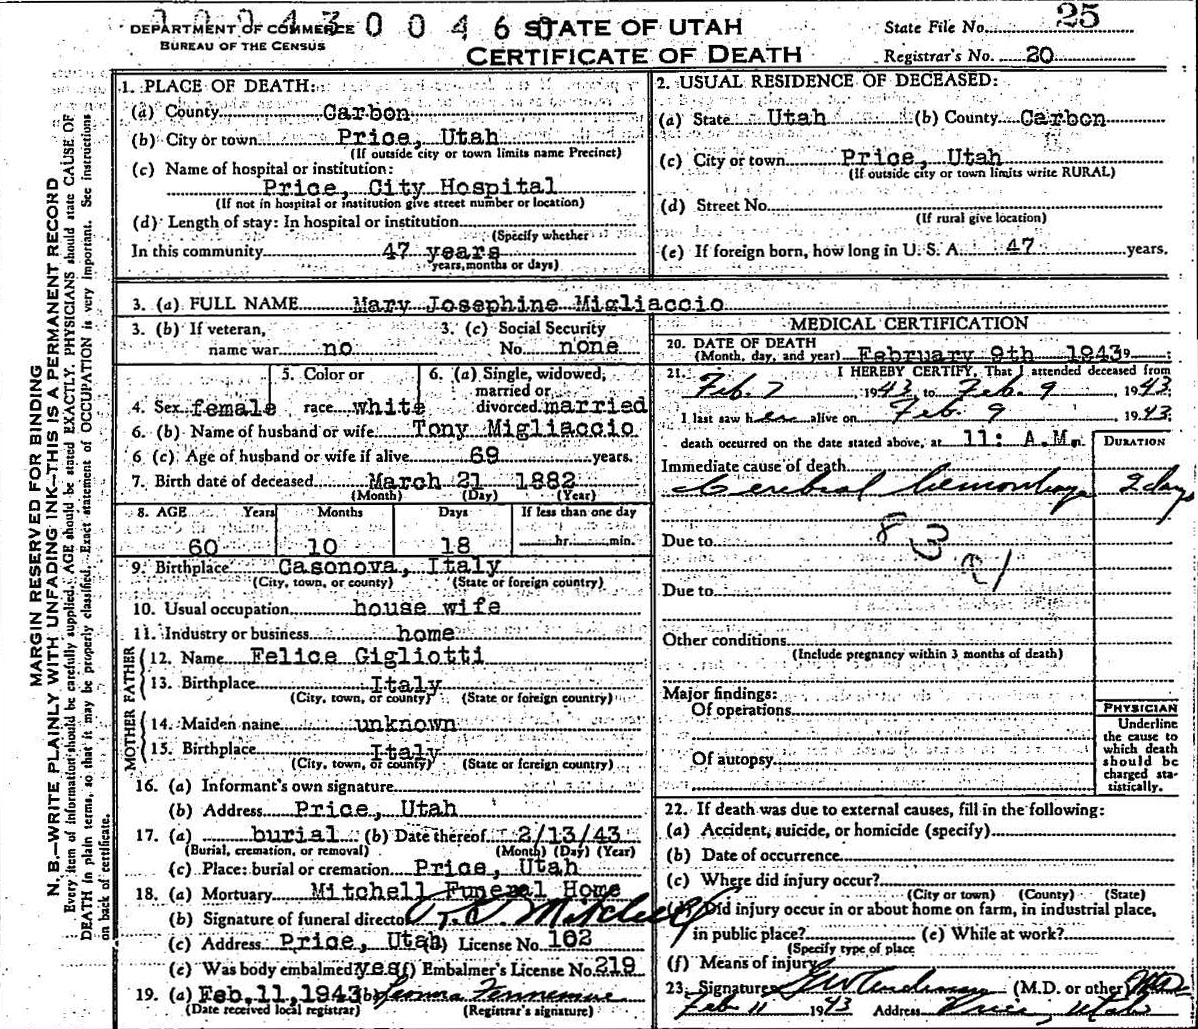 DEPARTMENT OF COMMERCE 0 0 4 6 0 STATE OF UTAH State File No. 25
BUREAU OF THE CENSUS CERTIFICATE OF DEATH Registrar's No. 20
MARGIN RESERVED FOR BINDING
N. B.—WRITE PLAINLY WITH UNFADING INK—THIS IS A PERMANENT RECORD
Every item of information should be carefully supplied. AGE should be stated EXACTLY. PHYSICIANS should state CAUSE OF
DEATH in plain terms, so that it may be properly classified. Exact statement of OCCUPATION is very important. See instructions
on back of certificate.
1. PLACE OF DEATH:
(a) County Carbon
(b) City or town Price, Utah
(If outside city or town limits name Precinct)
(c) Name of hospital or institution:
Price, City Hospital
(If not in hospital or institution give street number or location)
(d) Length of stay: In hospital or institution
(Specify whether
In this community 47 years
years, months or days)
2. USUAL RESIDENCE OF DECEASED:
(a) State Utah (b) County Carbon
(c) City or town Price, Utah
(If outside city or town limits write RURAL)
(d) Street No.
(If rural give location)
(e) If foreign born, how long in U. S. A. 47 years.
3. (a) FULL NAME Mary Josephine Migliaccio
3. (b) If veteran, 3. (c) Social Security
name war no No. none
5. Color or 6. (a) Single, widowed,
married or
4. Sex female race white divorced married
6. (b) Name of husband or wife Tony Migliaccio
6 (c) Age of husband or wife if alive 69 years.
7. Birth date of deceased March 21 1882
(Month) (Day) (Year)
8. AGE Years Months Days If less than one day
60 10 18 hr. min.
9. Birthplace Casonova, Italy
(City, town, or county) (State or foreign country)
10. Usual occupation house wife
11. Industry or business home
FATHER
12. Name Felice Gigliotti
13. Birthplace Italy
(City, town, or county) (State or foreign country)
MOTHER
14. Maiden name unknown
15. Birthplace Italy
(City, town, or county) (State or foreign country)
16. (a) Informant's own signature
(b) Address Price, Utah
17. (a) burial (b) Date thereof 2/13/43
(Burial, cremation, or removal) (Month) (Day) (Year)
(c) Place: burial or cremation Price, Utah
18. (a) Mortuary Mitchell Funeral Home
(b) Signature of funeral director Mitchell
(c) Address Price, Utah License No. 162
(e) Was body embalmed yes (f) Embalmer's License No. 219
19. (a) Feb. 11, 1943 (b)
(Date received local registrar) (Registrar's signature)
MEDICAL CERTIFICATION
20. DATE OF DEATH
(Month, day, and year) February 9th 1943
21. I HEREBY CERTIFY, That I attended deceased from
Feb. 7, 1943 to Feb. 9, 1943
I last saw her alive on Feb. 9 1943
death occurred on the date stated above, at 11: A.M. DURATION
Immediate cause of death
Cerebral hemorrhage 2 days
Due to 83
Due to
Other conditions
(Include pregnancy within 3 months of death)
Major findings:
Of operations
Of autopsy
PHYSICIAN
Underline
the cause to
which death
should be
charged sta-
tistically.
22. If death was due to external causes, fill in the following:
(a) Accident, suicide, or homicide (specify)
(b) Date of occurrence
(c) Where did injury occur?
(City or town) (County) (State)
Did injury occur in or about home on farm, in industrial place,
in public place? (e) While at work?
(Specify type of place
(f) Means of injury
23. Signature (M.D. or other)
Feb 11 1943 Address Price, Utah